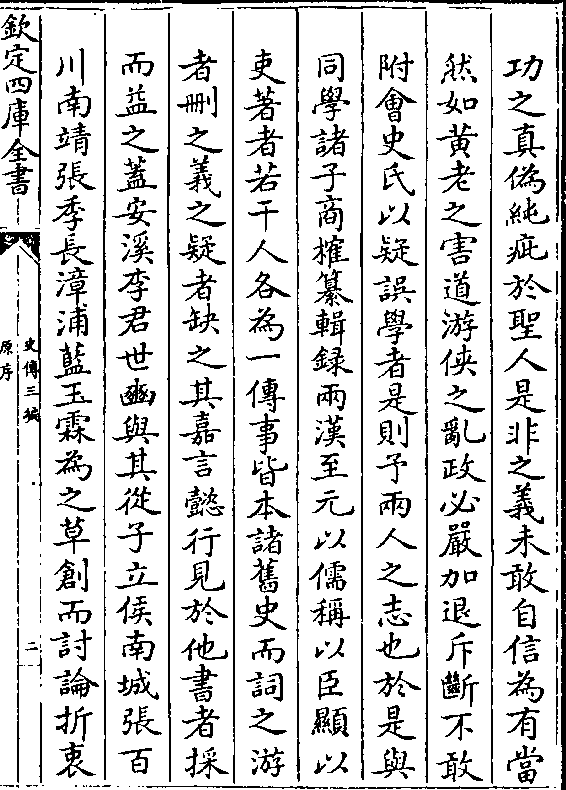 功之真偽純疵於聖人是非之義未敢自信為有當
然如黄老之害道游俠之亂政必嚴加退斥斷不敢
附會史氏以疑誤學者是則予兩人之志也於是與
同學諸子商榷纂輯録兩漢至元以儒稱以臣顯以
吏著者若干人各為一傳事皆本諸舊史而詞之游
者刪之義之疑者缺之其嘉言懿行見於他書者採
而益之蓋安溪李君世䣭與其從子立侯南城張百
川南靖張季長漳浦藍玉霖為之草創而討論折衷
欽定四庫全書
史傳三編
原序
二